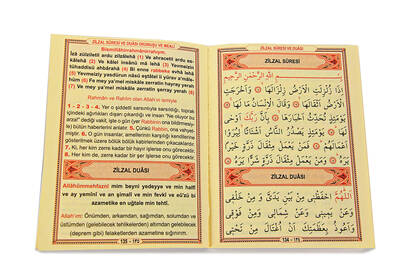 ZİLZAL SÛRESİ VE DUÂSI OKUNUŞU VE MEÂLİ
Bismillâhirrahmânirrahıym.
İzâ zülziletil ardu zilzâlehâ (1) Ve ahracetil ardu es-
kâlehâ (2) Ve kâlel insânü mâ lehâ (3) Yevmeizin
tühaddisü ahbârahâ (4) Bi enne rabbeke evhâ lehâ
(5) Yevmeiziy yasdürun nâsü eştâtel li yürav a'mâle-
hüm (6) Fe mey ya'mel miskâle zerratin hayray yerah
(7) Ve mey ya'mel miskâle zerratin şerray yerah (8)
Rahmân ve Rahîm olan Allah'ın ismiyle
1 - 2 - 3 - 4. Yer o şiddetli sarsıntısıyla sarsıldığı, toprak
içindeki ağırlıkları dışarı çıkardığı ve insan "Ne oluyor bu
arza!" dediği vakit, işte o gün (yer Rabbinin ona bildirmesiy-
le) bütün haberlerini anlatır. 5. Çünkü Rabbin, ona vahyet-
miştir. 6. O gün insanlar, amellerinin karşılığı kendilerine
gösterilmek üzere bölük bölük kabirlerinden çıkacaklardır.
7. Ki, her kim zerre kadar bir hayır işlerse onu görecektir.
8. Her kim de, zerre kadar bir şer işlerse onu görecektir.
ZİLZAL DUÂSI
Allâhümmehfaznî mim beyni yedeyye ve min halfî
ve ay yemînî ve an şimalî ve min fevkî ve eûzü bi
azametike en uğtale min tehtî.
Allah'ım: Önümden, arkamdan, sağımdan, solumdan ve
üstümden (gelebilecek tehlikelerden) altımdan gelebilecek
(deprem gibi) felaketlerden azametine sığınırım.
135 - ١٣٥
ZİLZAL SÛRESİ
بِسْمِ اللّٰهِ الرَّحْمٰنِ الرَّحِيمِ
اِذَا زُلْزِلَتِ الْاَرْضُ زِلْزَالَهَا ۝ وَاَخْرَجَتِ
الْاَرْضُ اَثْقَالَهَا ۝ وَقَالَ الْاِنْسَانُ مَا لَهَا ۝
يَوْمَئِذٍ تُحَدِّثُ اَخْبَارَهَا ۝ بِاَنَّ رَبَّكَ اَوْحٰى
لَهَا ۝ يَوْمَئِذٍ يَصْدُرُ النَّاسُ اَشْتَاتًا لِيُرَوْا
اَعْمَالَهُمْ ۝ فَمَنْ يَعْمَلْ مِثْقَالَ ذَرَّةٍ خَيْرًا
يَرَهُ ۝ وَمَنْ يَعْمَلْ مِثْقَالَ ذَرَّةٍ شَرًّا يَرَهُ ۝
ZİLZAL DUÂSI
اَللّٰهُمَّ احْفَظْنِى مِنْ بَيْنِ يَدَىَّ وَمِنْ خَلْفِى
وَعَنْ يَمِينِى وَعَنْ شِمَالِى وَمِنْ فَوْقِى
وَاَعُوذُ بِعَظَمَتِكَ اَنْ اُغْتَالَ مِنْ تَحْتِى
134 - ١٣٤